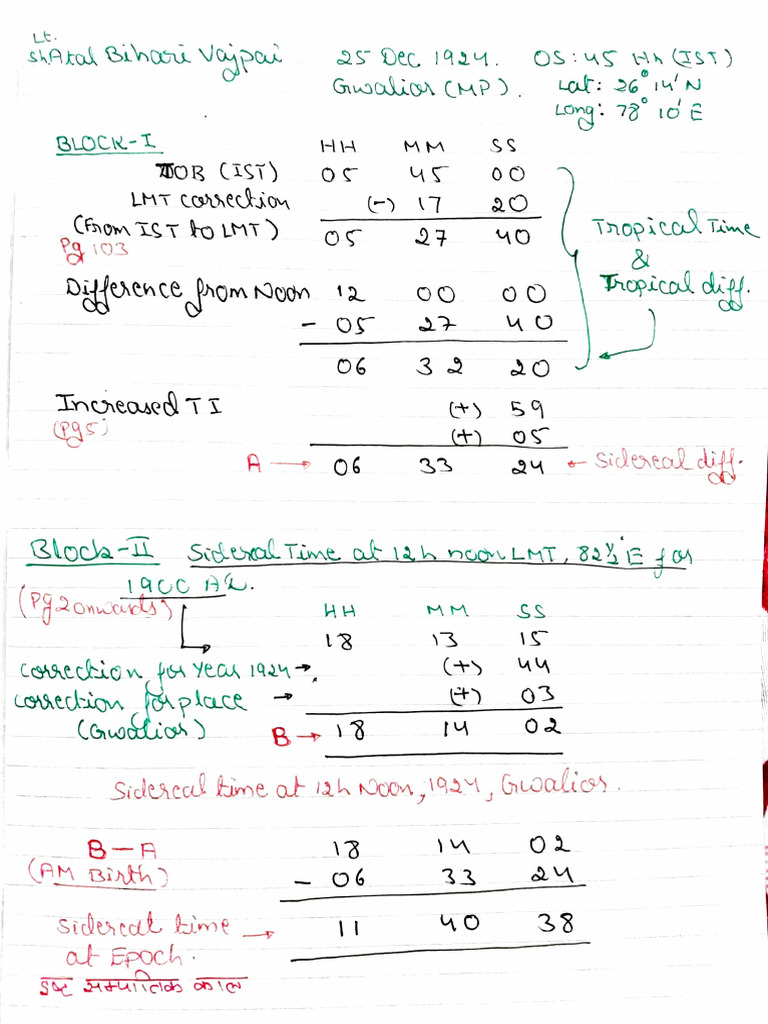 Lt.
Sh Atal Bihari Vajpai 25 Dec 1924. 05:45 Hh (IST)
Gwalior (MP). Lat: 26° 14' N
Long: 78° 10' E
BLOCK-I HH MM SS
TOB (IST) 05 45 00
LMT correction (-) 17 20
(From IST to LMT) 05 27 40
Pg 103
Tropical Time
&
Tropical diff.
Difference from Noon 12 00 00
- 05 27 40
06 32 20
Increased TI (+) 59
(Pg 5) (+) 05
A → 06 33 24 ← Sidereal diff.
Block-II Sidereal Time at 12h noon LMT, 82½° E for
1900 AD.
(Pg 2 onwards) HH MM SS
18 13 15
Correction for Year 1924 → (+) 44
Correction for place → (+) 03
(Gwalior) B → 18 14 02
Sidereal time at 12h Noon, 1924, Gwalior.
B - A 18 14 02
(AM Birth) - 06 33 24
Sidereal time → 11 40 38
at Epoch.
इष्ट सम्पातिक काल